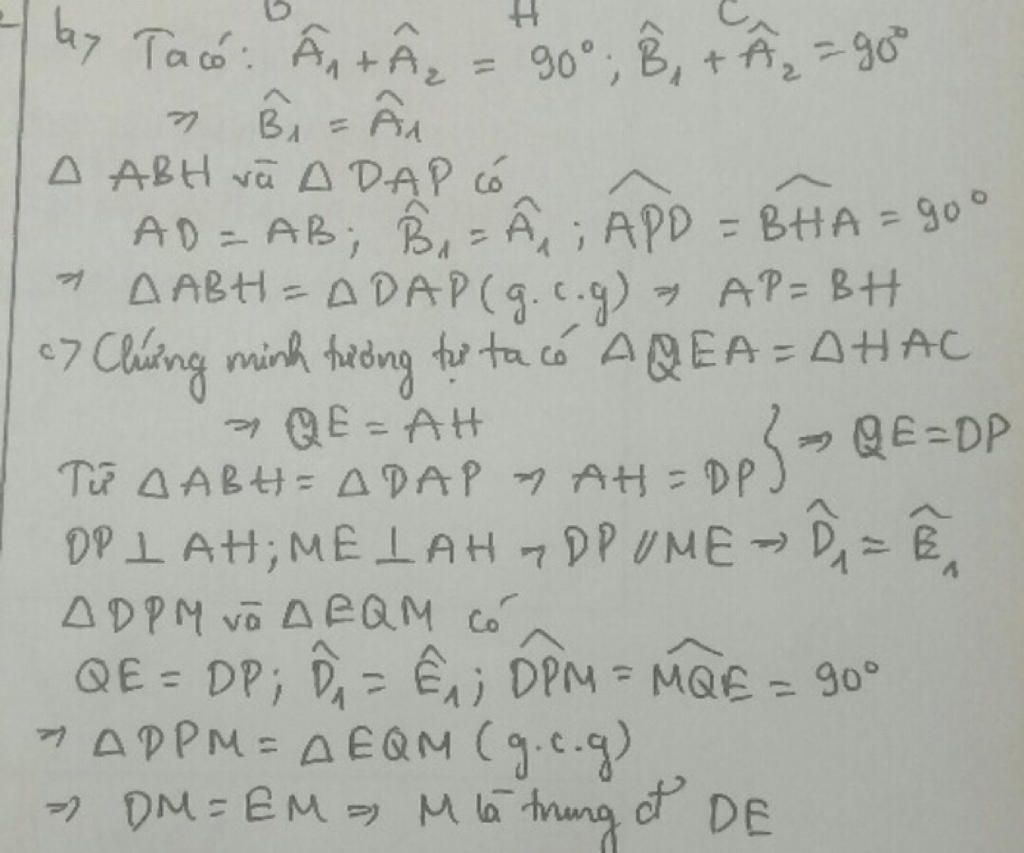 B H C
b, Ta có: Â₁ + Â₂ = 90°; B̂₁ + Â₂ = 90°
⇒ B̂₁ = Â₁
Δ ABH và Δ DAP có
AD = AB; B̂₁ = Â₁; \widehat{APD} = \widehat{BHA} = 90°
⇒ ΔABH = ΔDAP (g.c.g) ⇒ AP = BH
c, Chứng minh tương tự ta có ΔQEA = ΔHAC
⇒ QE = AH
Từ ΔABH = ΔDAP ⇒ AH = DP } ⇒ QE = DP
DP ⊥ AH; ME ⊥ AH ⇒ DP // ME ⇒ D̂₁ = Ê₁
ΔDPM và ΔEQM có
QE = DP; D̂₁ = Ê₁; \widehat{DPM} = \widehat{MQE} = 90°
⇒ ΔDPM = ΔEQM (g.c.g)
⇒ DM = EM ⇒ M là trung đ' DE